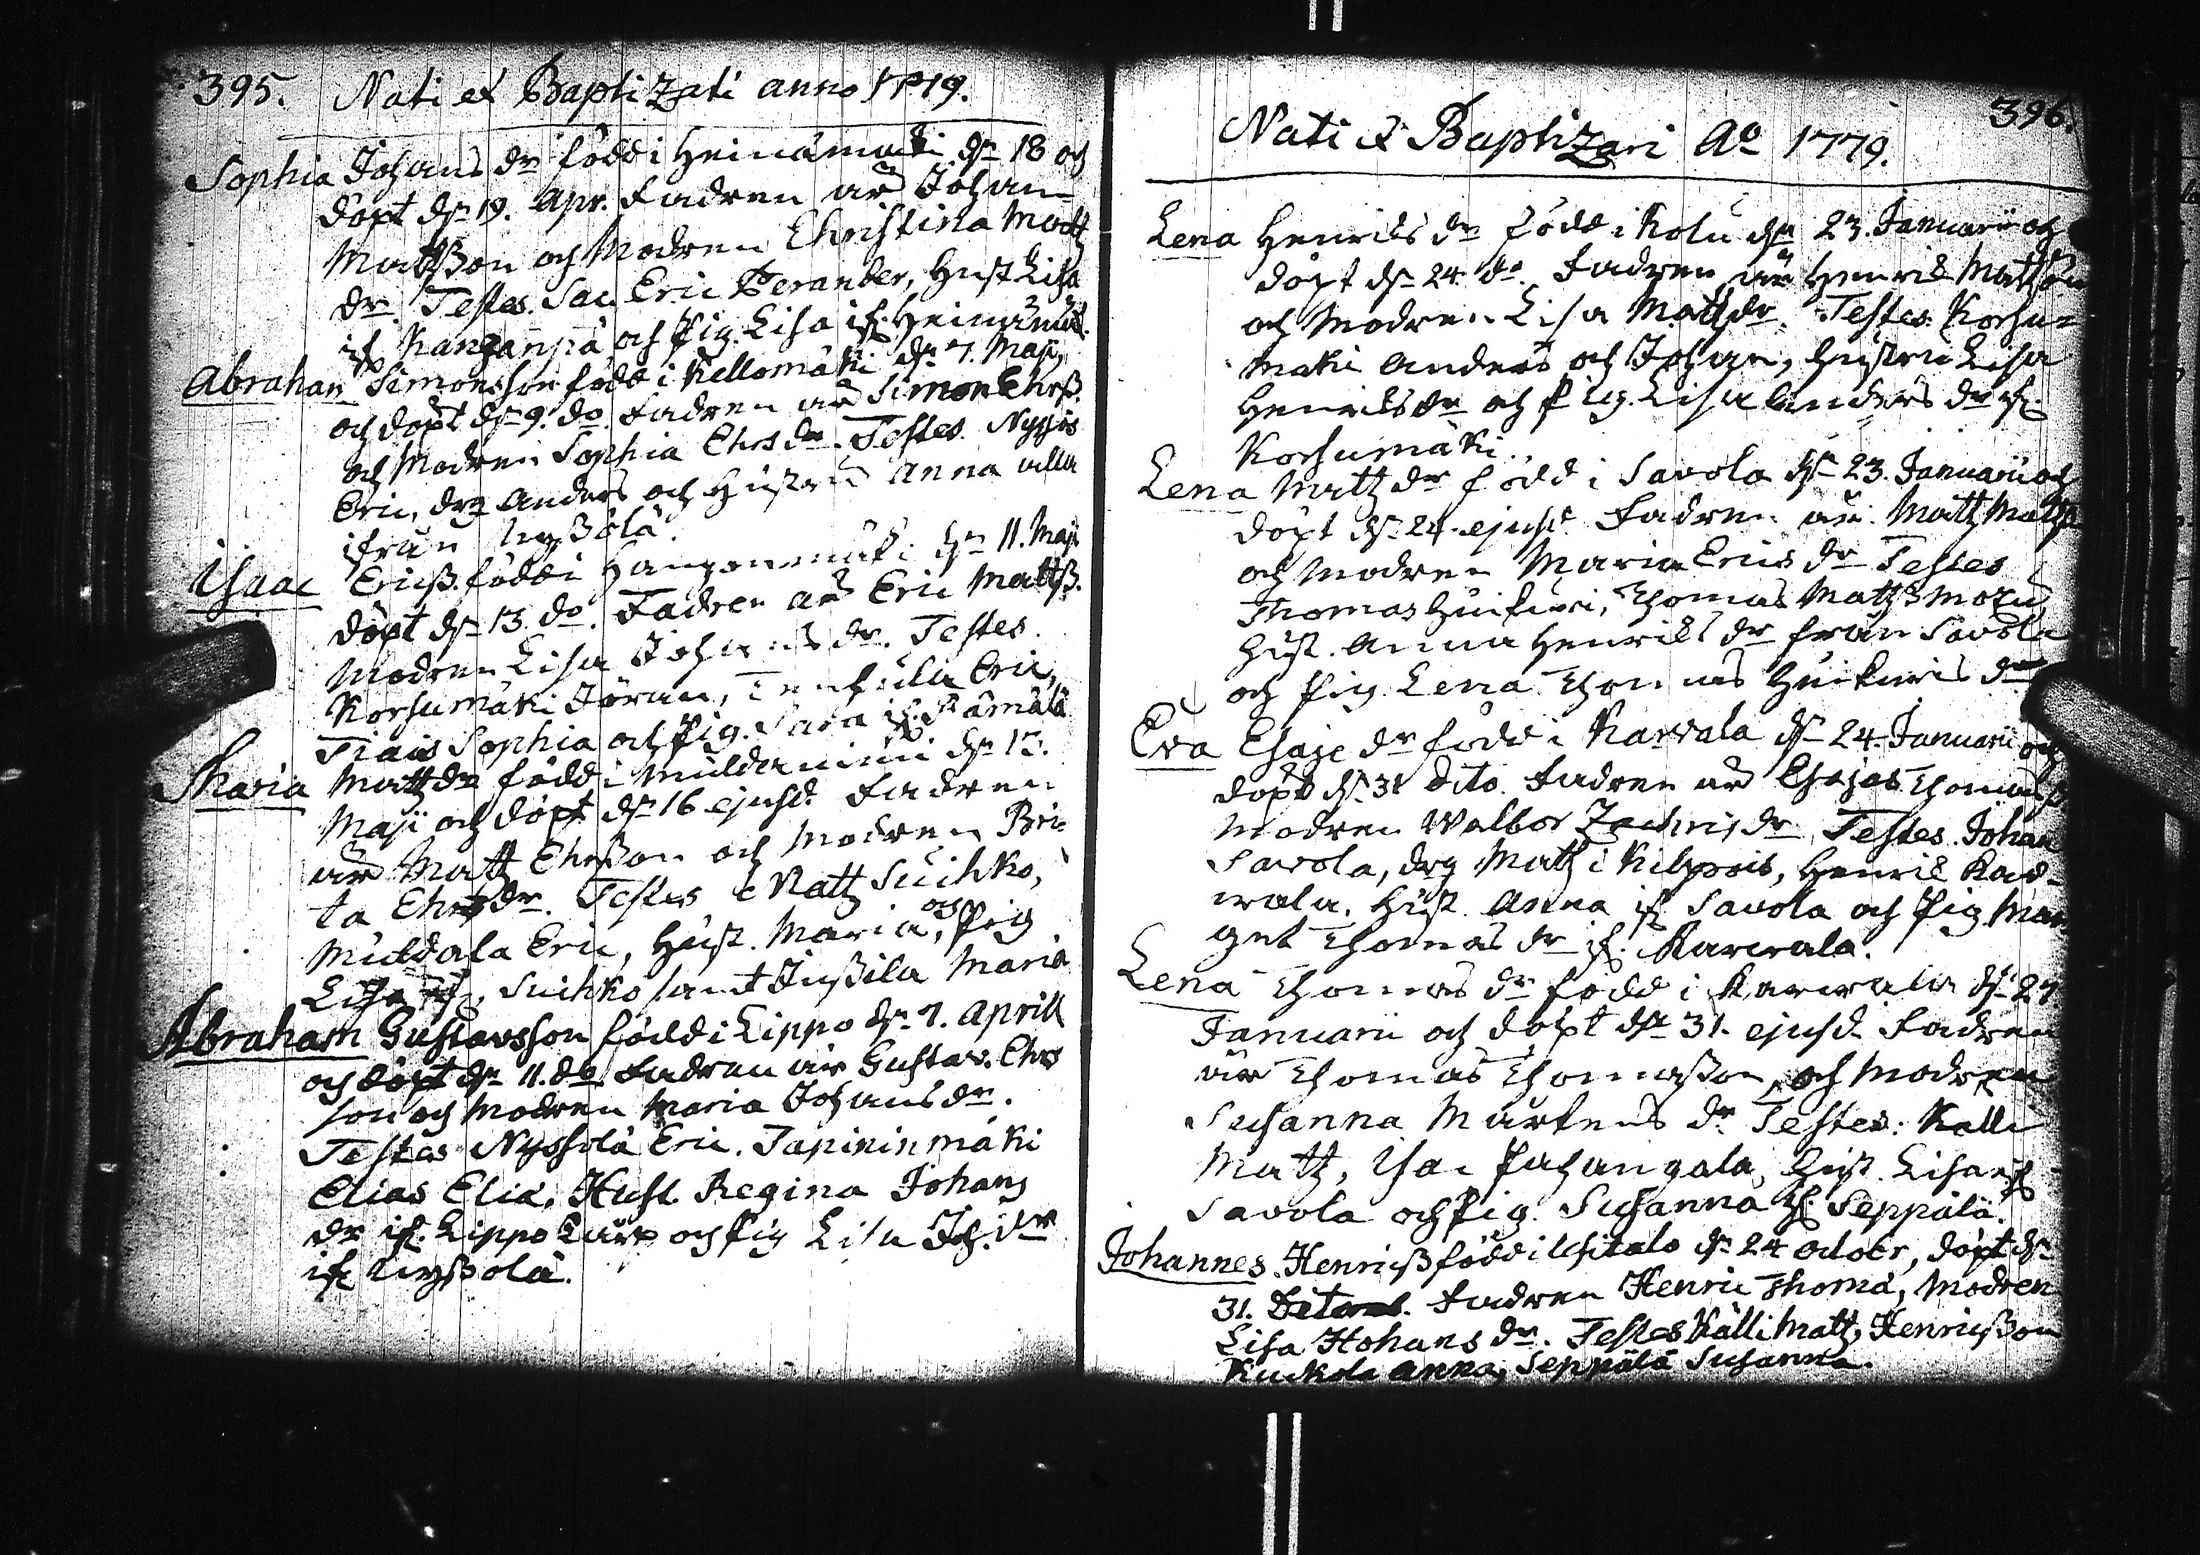 395. Nati et Baptizati anno 1779.
Sophia Johans dr född i Heinämäki dn 18 och
döpt dn 19. Apr. Fadren är Johan
Mattßon och Modren Christina Matts
dr. Testes. Sac Eric Perander, Hust Lisa
if. Kanganpä och Pig. Lisa if. Heinämäk.
Abraham Simonsson född i Kellomäki dn 7. Maji,
och döpt dn 9. do. Fadren är Simon Ehrß.
och Modren Sophia Ehrs dr. Testes. Nyssös
Eric, drg Anders och Hustru Anna alla
ifrån Nyßölä.
Isaac Ericß. född i dn 11. Maji
döpt dn 13 do. Fadren är Eric Mattß.
Modren Lisa Johans dr. Testes.
Korsumäki Jöran, Eric,
Tiais Sophia och Pig. Sara if. Sämälä
Maria Matts dr född i Muldaniemi dn 13.
Maji och döpt dn 16 ejusd. Fadren
är Matt Ehrßon och Modren Bri-
ta Ehrs dr. Testes Matt Suihko,
Muldala Eric, Hust. Maria, och Pig
Lisa if. Suihko samt Jußila Maria
Abraham Gustavsson född i Lippo dn 7. Aprill
och döpt dn 11. do. Fadren är Gustav. Ehrs
son och Modren Maria Johans dr.
Testes Nyssölä Eric. Tapininmäki
Elias Eliæ, Hust. Regina Johans
dr if. Lippo Lars och Pig Lisa Joh. dr
if. Nyßölä.
396.
Nati & Baptizari Ao 1779.
Lena Henriks dr född i Kolu dn 23. Januarii och
döpt dn 24. do. Fadren är Henrik Matsson
och Modren Lisa Matts dr. Testes Korsu-
mäki Anders och Johan, Hustru Lisa
Henriks dr och Pig. Lisa Anders dr if.
Korsumäki.
Lena Matts dr född i Savola dn 23. Januarii och
döpt dn 24. ejusd. Fadren är Matts Mattß
och Modren Maria Erics dr Testes
Thomas Huikuri, Thomas Matts
Hust. Anna Henriks dr från Savola
och Pig. Lena Thomas Huikuris dr
Eva Esaje dr född i Karvala dn 24. Januarii och
döpt dn 31 dito. Fadren är Esajas Thomasß
Modren Walbor Zachris dr Testes. Johan
Savola, drg Matts i Kilpois, Henrik Kar-
wala. Hust. Anna if Savola och Pig. Mar
get Thomas dr if. Karwala.
Lena Thomas dr född i Karwala dn 27
Januarii och döpt dn 31. ejusd. Fadren
är Thomas Thomaßon och Modren
Susanna Mårtens dr. Testes: Kalli
Matts, Isac Pahangala, Hust. Lisa if
Savola och Pig. Susanna if. Seppälä.
Johannes. Henricß född i Ylitalo dn 24 october, döpt dn
31. Fadren Henric Thomæ, Modren
Lisa Hohans dr. Testes Källi Matts, Henricßon
Kuckola Anna, Seppälä Susanna.